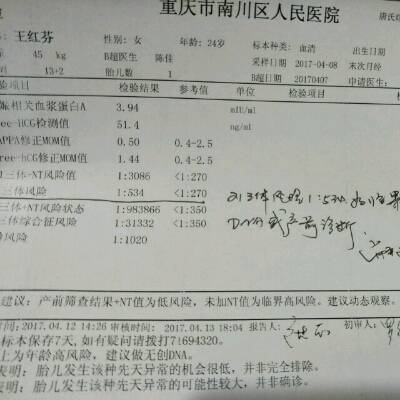 重庆市南川区人民医院
王红芬 性别: 女 年龄: 24岁 标本种类: 血清 出生日期
45 kg B超医生 陈佳 采样日期 2017-04-08 末次月经
13+2 胎儿数 1 B超日期 20170407 申请医生:
验项目 检验结果 参考值 单位 检验项目
娠相关血浆蛋白A 3.94 mIU/ml
ree-HCG检测值 51.4 ng/ml
APPA修正MOM值 0.50 0.4-2.5
ree-hCG修正MOM值 1.44 0.4-2.5
三体+NT风险值 1:3086 <1:270
三体风险 1:534 <1:270
三体+NT风险状态 1:983866 <1:350
三体综合征风险 1:31332 <1:350
风险 1:1020
21三体风险1:534,
DNA或产前诊断
建议: 产前筛查结果+NT值为低风险, 未加NT值为临界高风险。建议动态观察。
时间: 2017.04.12 14:26 审核时间: 2017.04.13 18:04 报告人: 初审人:
标本保存7天, 如有疑问请拨打71694320.
上为年龄高风险, 建议做无创DNA。
表明: 胎儿发生该种先天异常的机会很低, 并非完全排除。
表明: 胎儿发生该种先天异常的可能性较大, 并非确诊。